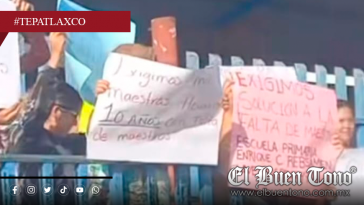 #TEPATLAXCO
¡Exigimos m
maestros
10 AÑOS con falta
de maestros
EXIGIMOS
SOLUCIÓN A LA
FALTA DE
ESCUELA PRIMARIA
ENRIQUE C. REBSAMEN
El Buen Tono
www.elbuentono.com.mx